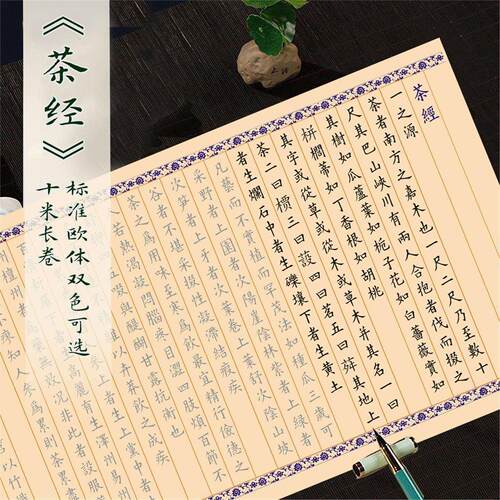 《茶经》
标准欧体双色可选
十米长卷
茶經
一之源
茶者南方之嘉木也一尺二尺乃至數十
尺其巴山峽川有兩人合抱者伐而掇之
其樹如瓜蘆葉如梔子花如白薔薇實如
栟櫚蒂如丁香根如胡桃
其字或從草或從木或草木并其名一曰
茶二曰檟三曰蔎四曰茗五曰荈其地上
者生爛石中者生礫壤下者生黃土
凡藝而不實植而罕茂法如種瓜三歲可
采野者上園者次陽崖陰林紫者上綠者
次筍者上牙者次葉卷上葉舒次陰山坡
谷者不堪采掇性凝滯結瘕疾
茶之為用味至寒為飲最宜精行儉德之
人若熱渴凝悶腦疼目澀四肢煩百節不
五啜與醍醐甘露抗衡也
雜以卉莽飲之成疾
上者生上黨中者
高麗有生澤州易州
況非此者設服
知人矣為累則茶累
以竹